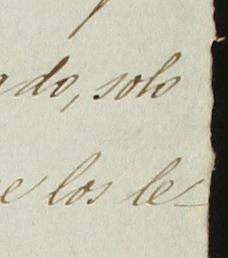 ado, solo
e los le-